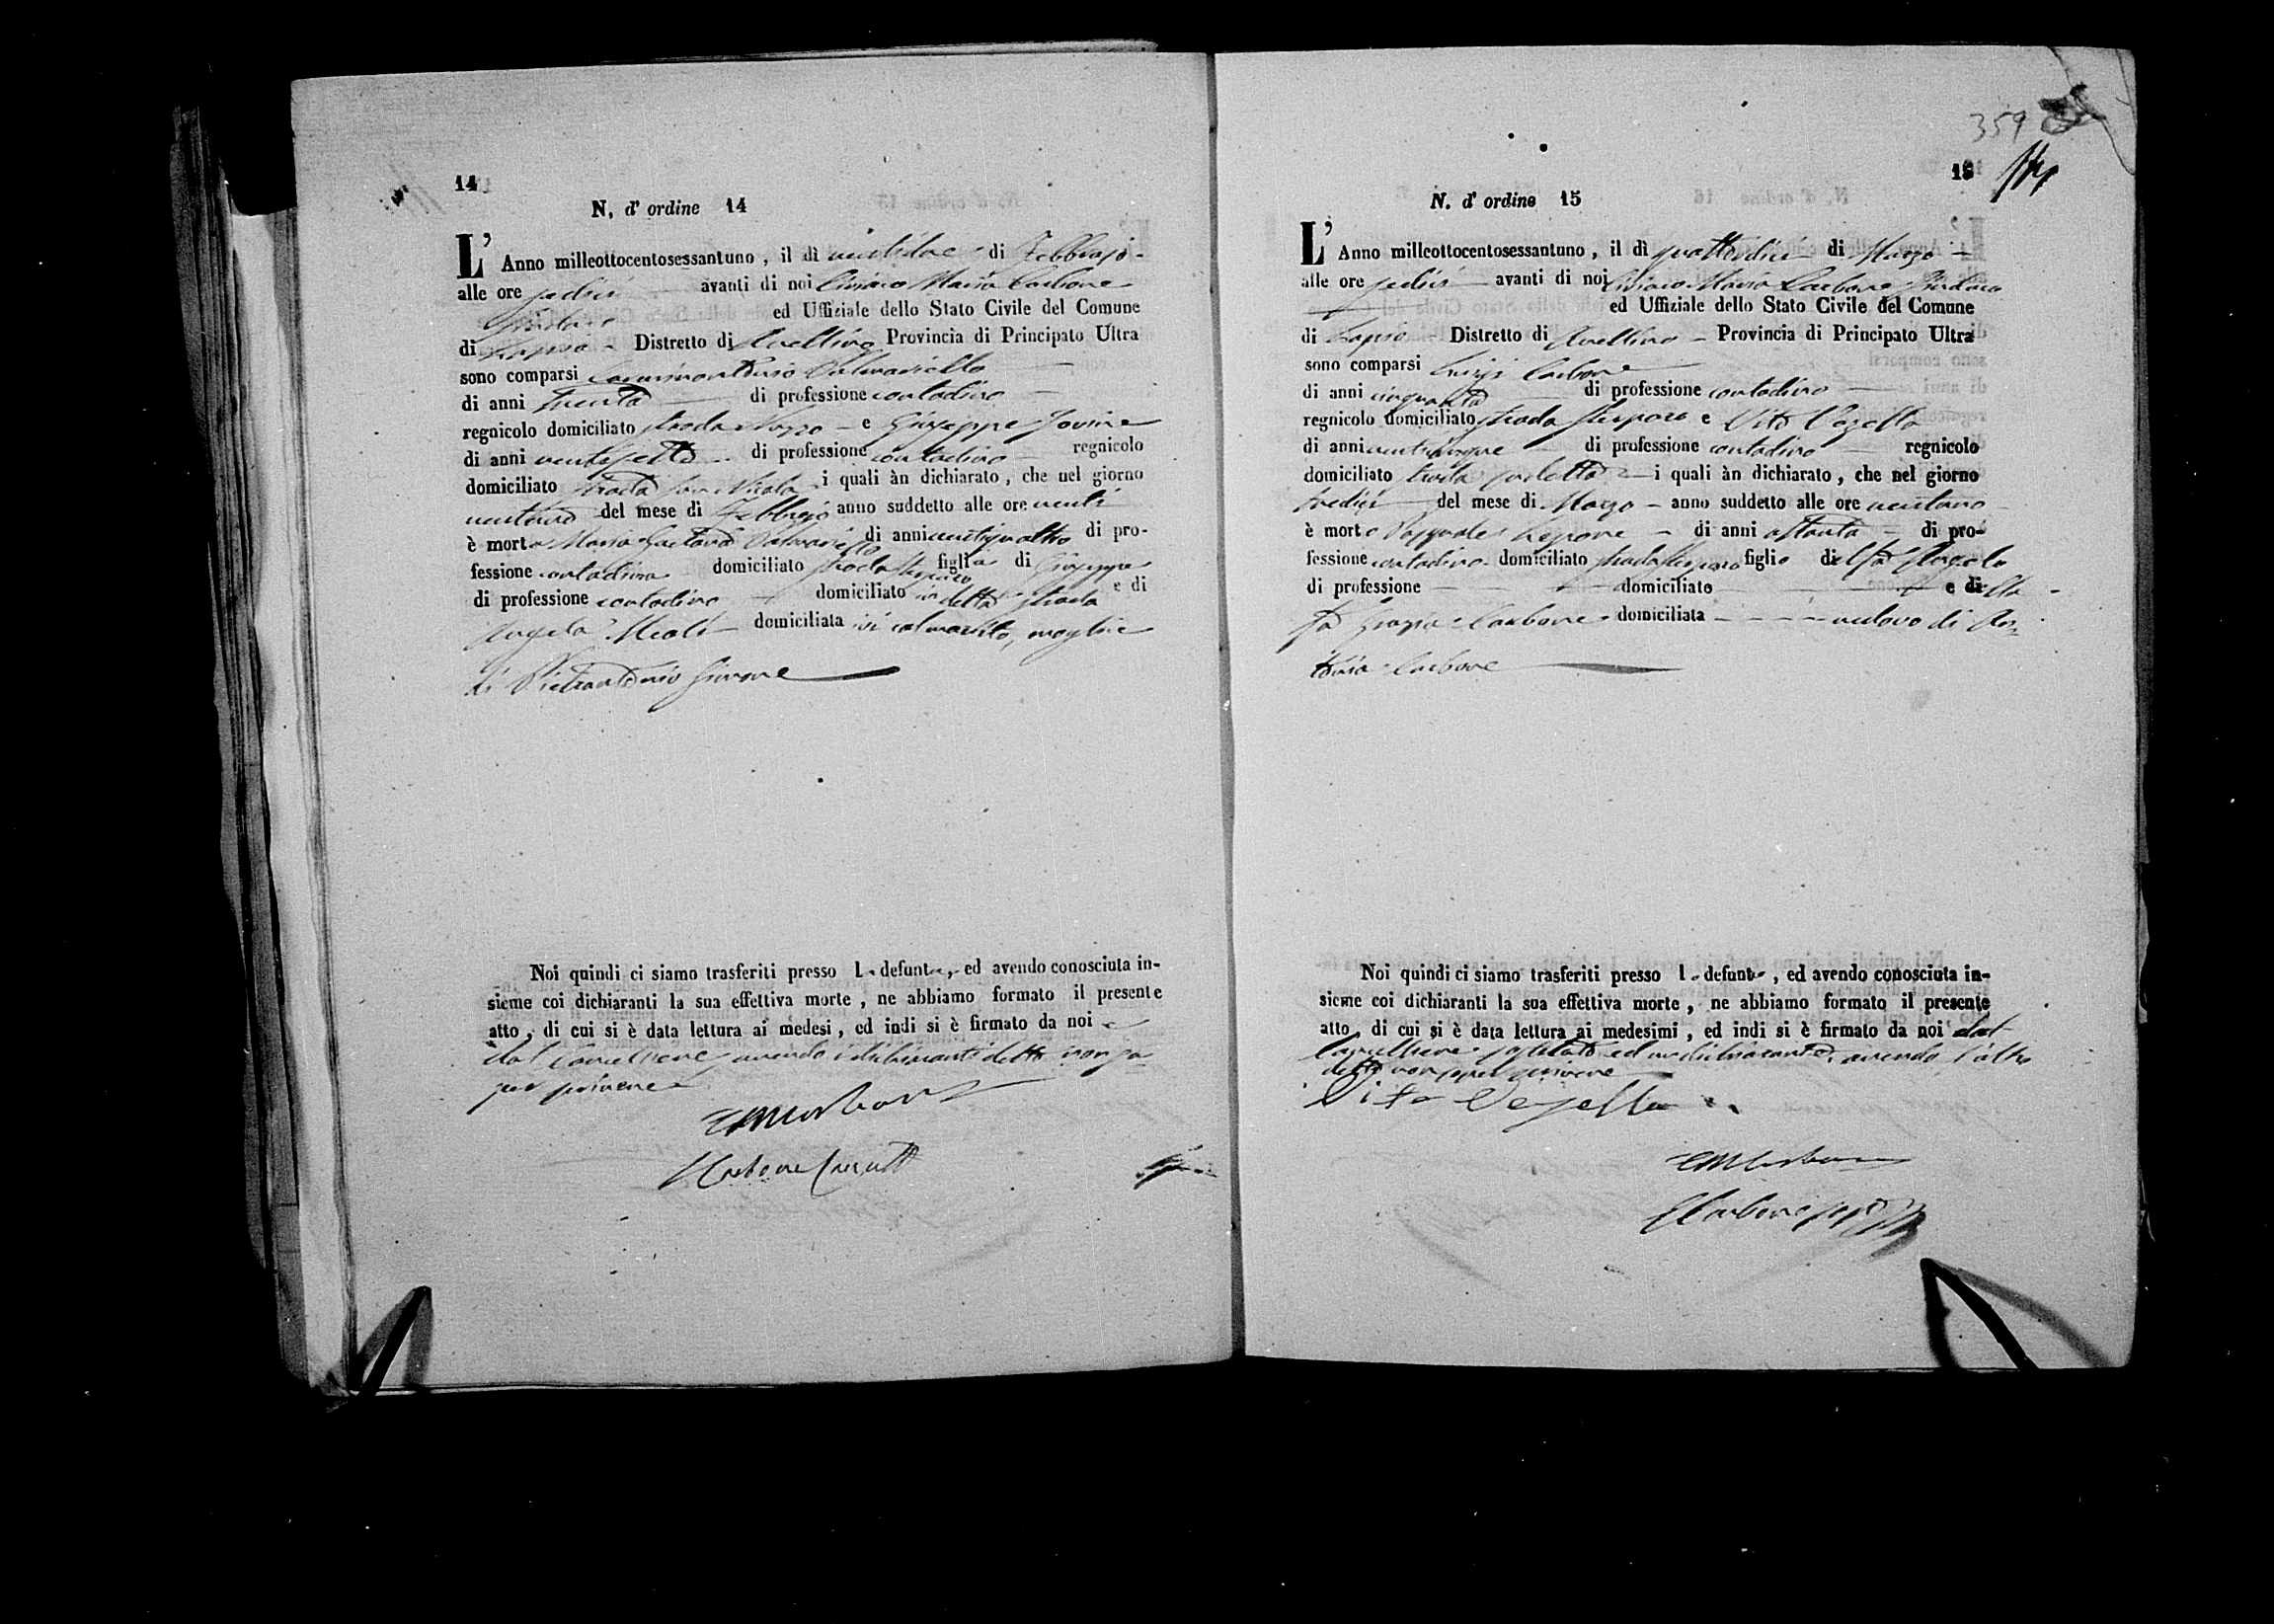 14
N. d' ordine 14
L' Anno milleottocentosessantuno, il dì ventidue di Febbrajo
alle ore sedici avanti di noi Ciriaco Maria Carbone
Sindaco ed Uffiziale dello Stato Civile del Comune
di Lapio Distretto di Avellino Provincia di Principato Ultra
sono comparsi
di anni trenta di professione contadino
regnicolo domiciliato strada e Giuseppe Iovine
di anni ventisette di professione contadino regnicolo
domiciliato strada San Nicola i quali àn dichiarato, che nel giorno
ventuno del mese di Febbrajo anno suddetto alle ore venti
è morta Maria Gaetana di anni ventiquattro di pro-
fessione contadina domiciliato strada figlia di Giuseppe
di professione contadino domiciliato in detta strada e di
Angela domiciliata ivi col marito, moglie
di Pietrantonio
Noi quindi ci siamo trasferiti presso la defunta, ed avendo conosciuta in-
sieme coi dichiaranti la sua effettiva morte, ne abbiamo formato il presente
atto, di cui si è data lettura ai medesi, ed indi si è firmato da noi e
dal Cancelliere, avendo i dichiaranti detto non sa-
per scrivere
359
15
N. d' ordine 15
L' Anno milleottocentosessantuno, il dì quattordici di Marzo
alle ore sedici avanti di noi Ciriaco Maria Carbone Sindaco
ed Uffiziale dello Stato Civile del Comune
di Lapio Distretto di Avellino Provincia di Principato Ultra
sono comparsi Luigi Carbone
di anni cinquanta di professione contadino
regnicolo domiciliato strada e Vito Vegella
di anni venticinque di professione contadino regnicolo
domiciliato strada i quali àn dichiarato, che nel giorno
tredici del mese di Marzo anno suddetto alle ore ventuno
è morto Pasquale di anni ottanta di pro-
fessione contadino domiciliato strada figlio del fu Angelo
di professione domiciliato e della
fu Grazia Carbone domiciliata vedovo di An-
tonia Carbone
Noi quindi ci siamo trasferiti presso lo defunto, ed avendo conosciuta in-
sieme coi dichiaranti la sua effettiva morte, ne abbiamo formato il presente
atto, di cui si è data lettura ai medesimi, ed indi si è firmato da noi dal
Cancelliere sostituto ed un dichiarante, avendo l'altro
detto non saper scrivere
Vito Vegella